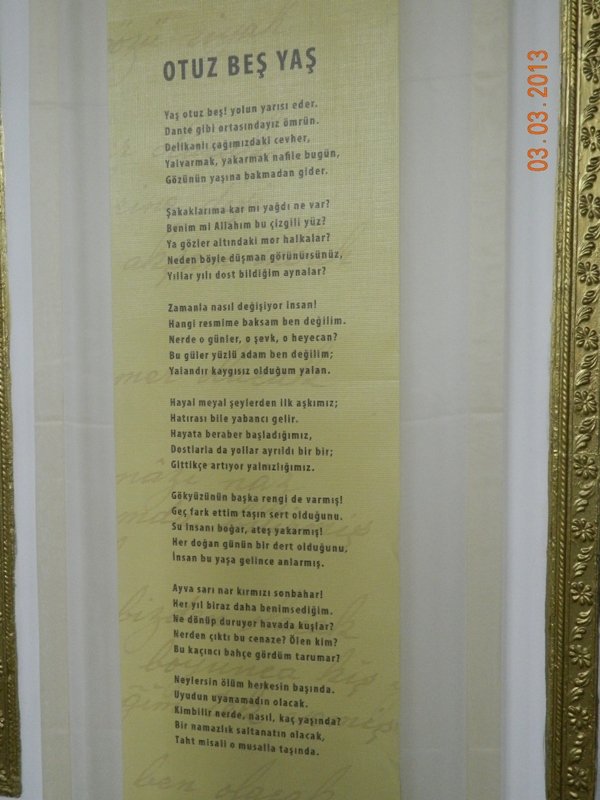 OTUZ BEŞ YAŞ
Yaş otuz beş! yolun yarısı eder.
Dante gibi ortasındayız ömrün.
Delikanlı çağımızdaki cevher,
Yalvarmak, yakarmak nafile bugün,
Gözünün yaşına bakmadan gider.
Şakaklarıma kar mı yağdı ne var?
Benim mi Allahım bu çizgili yüz?
Ya gözler altındaki mor halkalar?
Neden böyle düşman görünürsünüz,
Yıllar yılı dost bildiğim aynalar?
Zamanla nasıl değişiyor insan!
Hangi resmime baksam ben değilim.
Nerde o günler, o şevk, o heyecan?
Bu güler yüzlü adam ben değilim;
Yalandır kaygısız olduğum yalan.
Hayal meyal şeylerden ilk aşkımız;
Hatırası bile yabancı gelir.
Hayata beraber başladığımız,
Dostlarla da yollar ayrıldı bir bir;
Gittikçe artıyor yalnızlığımız.
Gökyüzünün başka rengi de varmış!
Geç fark ettim taşın sert olduğunu.
Su insanı boğar, ateş yakarmış!
Her doğan günün bir dert olduğunu,
İnsan bu yaşa gelince anlarmış.
Ayva sarı nar kırmızı sonbahar!
Her yıl biraz daha benimsediğim.
Ne dönüp duruyor havada kuşlar?
Nerden çıktı bu cenaze? Ölen kim?
Bu kaçıncı bahçe gördüm tarumar?
Neylersin ölüm herkesin başında.
Uyudun uyanamadın olacak.
Kimbilir nerde, nasıl, kaç yaşında?
Bir namazlık saltanatın olacak,
Taht misali o musalla taşında.
03.03.2013